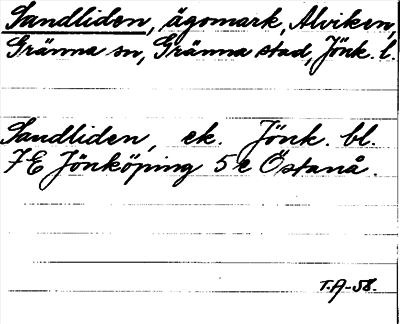 Sandliden, ägomark, Alviken,
Gränna sn, Gränna stad, Jönk. l.
Sandliden, ek. Jönk. bl.
7E Jönköping 5e Östanå.
T.A-58.